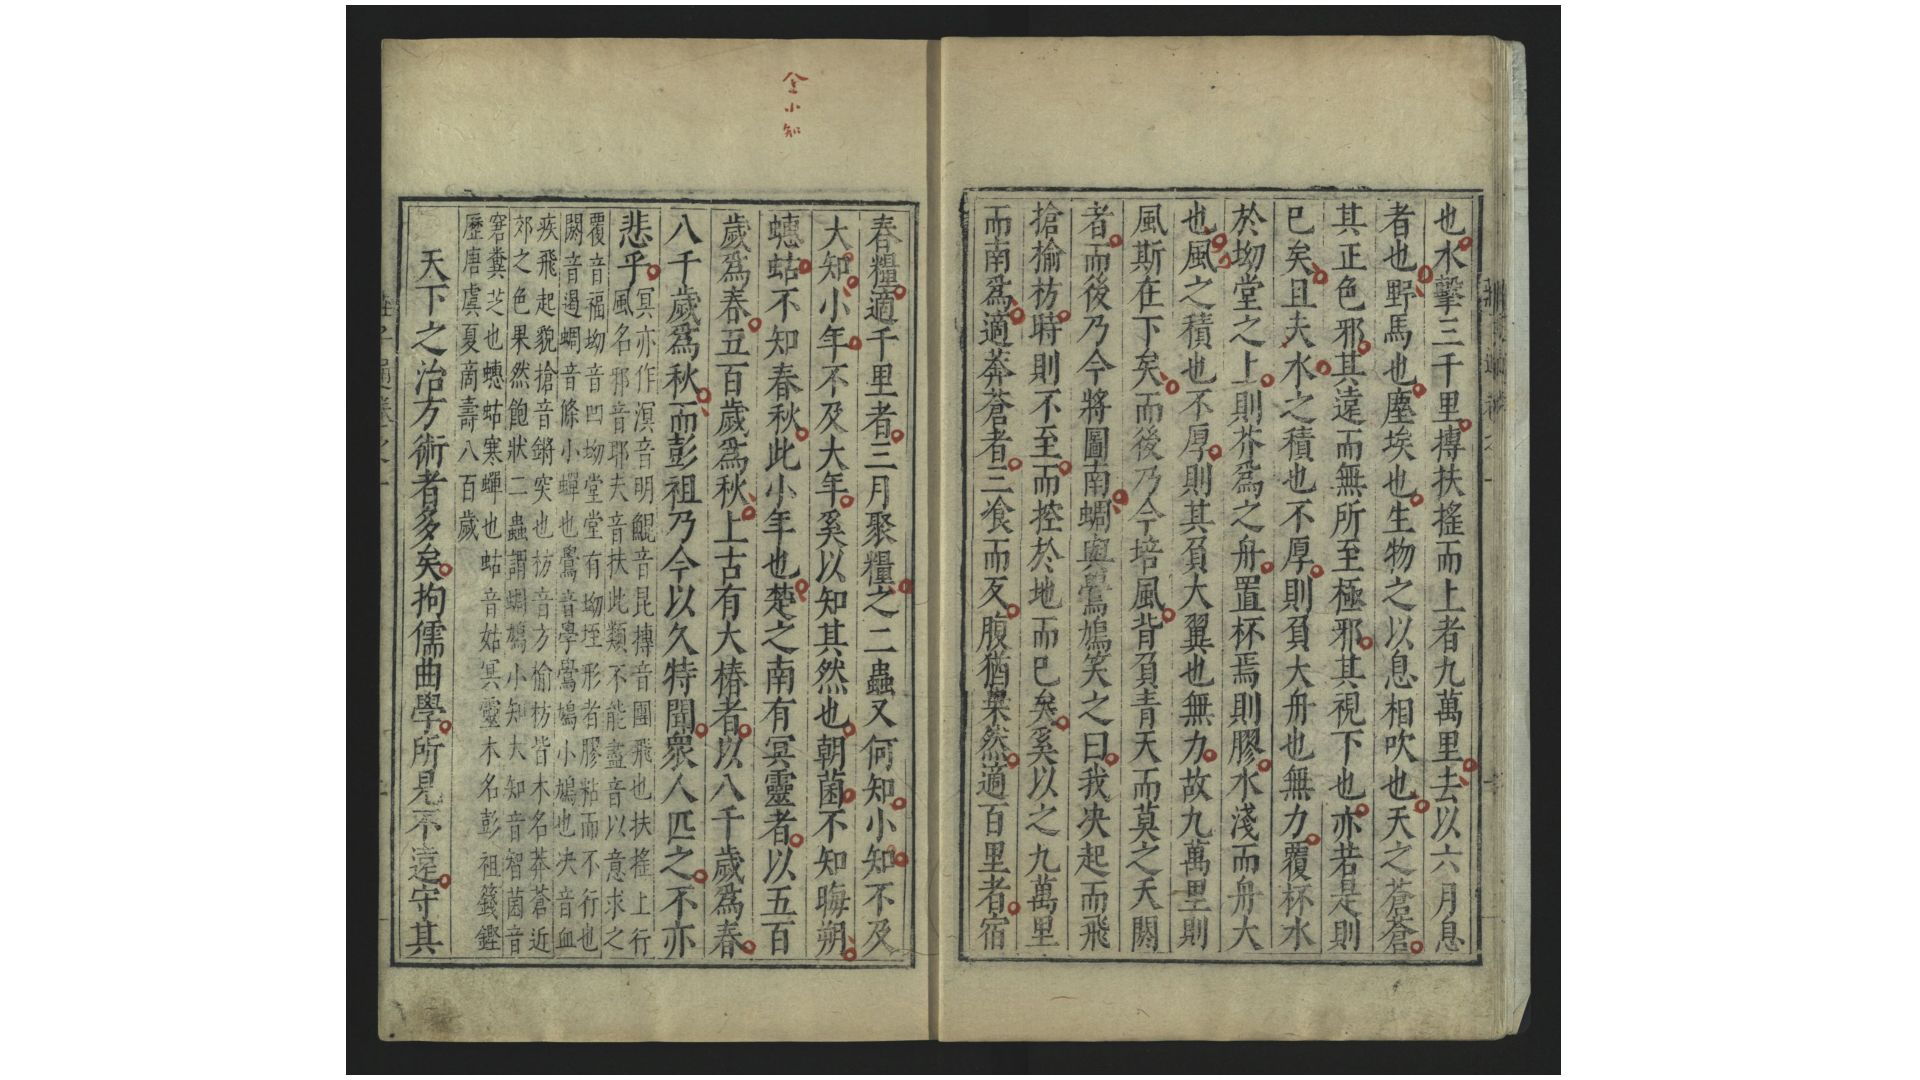 也水擊三千里摶扶搖而上者九萬里去以六月息
者也野馬也塵埃也生物之以息相吹也天之蒼蒼
其正色邪其遠而無所至極邪其視下也亦若是則
已矣且夫水之積也不厚則負大舟也無力覆杯水
於坳堂之上則芥為之舟置杯焉則膠水淺而舟大
也風之積也不厚則其負大翼也無力故九萬里則
風斯在下矣而後乃今培風背負青天而莫之夭閼
者而後乃今將圖南蜩與鷽鳩笑之曰我决起而飛
搶榆枋時則不至而控於地而已矣奚以之九萬里
而南為適莽蒼者三飡而反腹猶果然適百里者宿
全小知
舂糧適千里者三月聚糧之二蟲又何知小知不及
大知小年不及大年奚以知其然也朝菌不知晦朔
蟪蛄不知春秋此小年也楚之南有冥靈者以五百
歲為春五百歲為秋上古有大椿者以八千歲為春
八千歲為秋而彭祖乃今以久特聞衆人匹之不亦
悲乎冥亦作溟音明鯤音昆摶音團飛也扶搖上行
風名邪音耶夫音扶此類不能盡音以意求之
覆音福坳音凹坳堂堂有坳垤形者膠粘而不行也
閼音遏蜩音條小蟬也鷽音學鷽鳩小鳩也决音血
疾飛起貌搶音鏘突也枋音方榆枋皆木名莽蒼近
郊之色果然飽狀二蟲謂蜩鳩小知大知音智菌音
窘糞芝也蟪蛄寒蟬也蛄音姑冥靈木名彭祖籛鏗
歷唐虞夏啇壽八百歲
天下之治方術者多矣拘儒曲學所見不遠守其